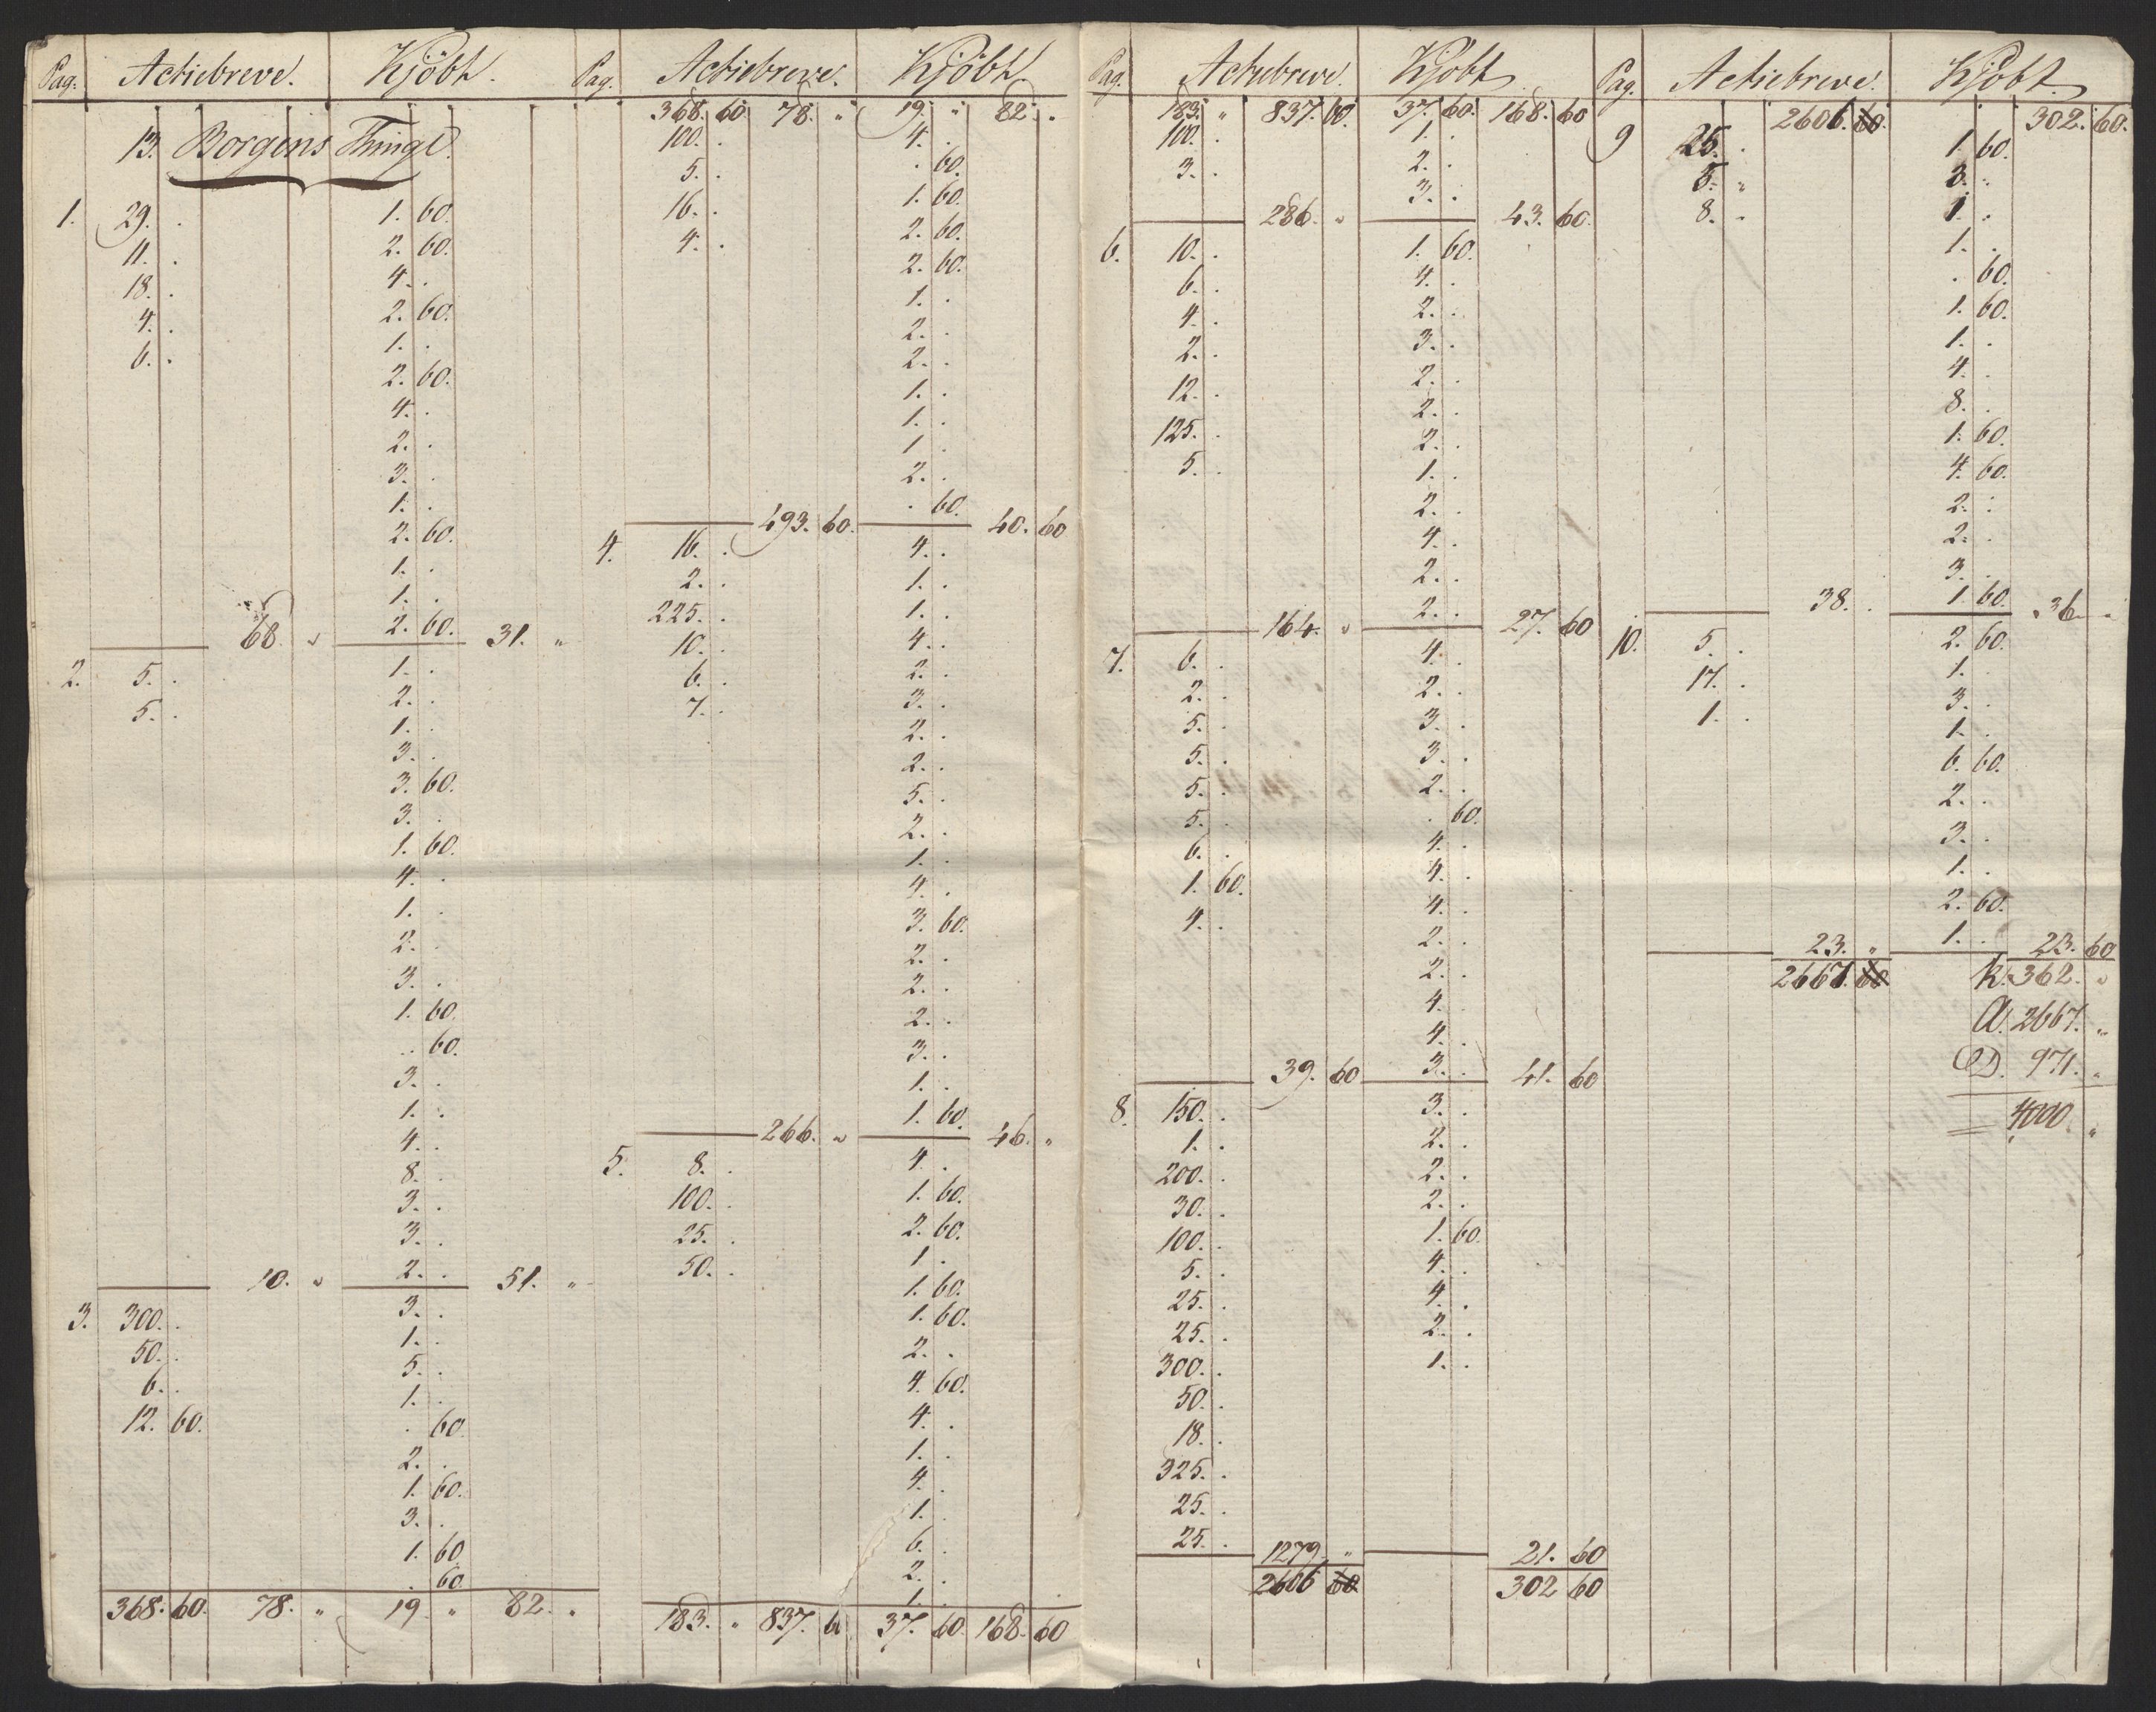 Pag. Actiebreve. Kjöbt.
13. Borgens Thingl.
1. 29. . 1. 60.
11. . 2. 60.
18. . 4. .
4. . 2. 60.
6. . 1. .
2. 60.
4. .
2. .
3. .
1. .
2. 60.
1. .
1. .
68. " 2. 60. 31. "
2. 5. . 1. .
5. . 2. .
1. .
3. .
3. 60.
3. .
1. 60.
4. .
1. .
2. .
3. .
1. 60.
. 60.
3. .
1. .
4. .
8. .
3. .
3. .
10. " 2. . 51. "
3. 300. . 3. .
50. . 1. .
6. . 5. .
12. 60. 1. .
. 60.
2. .
1. 60.
3. .
1. 60.
. 60.
368. 60. 78. " 19. " 82. "
Pag. Actiebreve. Kjöbt.
368. 60 78. " 19. " 82. "
100. . 4. .
5. . . 60.
16. . 1. 60.
4. . 2. 60.
2. 60.
1. .
2. .
2. .
1. .
1. .
1. .
2. .
493. 60. . 60. 40. 60
4. 16. . 4. .
2. . 1. .
225. . 1. .
10. . 4. .
6. . 2. .
7. . 3. .
2. .
2. .
5. .
2. .
1. .
4. .
3. 60.
2. .
2. .
2. .
3. .
1. .
266. " 1. 60. 46. "
5. 8. . 4. .
100. . 1. 60.
25. . 2. 60.
50. . 1. .
1. 60.
1. 60.
2. .
4. 60.
4. .
1. .
4. .
1. .
6. .
2. .
1. .
183. " 837. 60 37. 60. 168. 60
Pag. Actiebreve. Kjöbt.
183. " 837. 60. 37. 60. 168. 60
100. . 1. .
3. . 2. .
3. .
286. " 43. 60.
6. 10. . 1. 60.
6. . 4. .
4. . 2. .
2. . 3. .
12. . 2. .
125. . 2. .
5. . 2. .
1. .
2. .
4. .
2. .
164. " 2. . 27. 60
7. 6. . 4. .
2. . 2. .
5. . 3. .
5. . 3. .
5. . 2. .
5. . . 60.
6. . 4. .
1. 60. 4. .
4. . 4. .
2. .
2. .
4. .
4. .
39. 60 3. . 41. 60
8. 150. . 3. .
1. . 2. .
200. . 2. .
30. . 2. .
100. . 1. 60.
5. . 4. .
25. . 4. .
25. . 2. .
300. . 1. .
50. .
18. .
325. .
25. .
25. .
1279. " 21. 60
2606 60 302 60
Pag. Actiebreve. Kjöbt.
2606. 60. 302. 60.
9 25. . 1. 60.
5. " 3. .
8. . 1. .
1. .
. 60.
1. 60.
1. .
4. .
8. .
1. 60.
4. 60.
2. .
2. .
3. .
38. . 1. 60. 36. "
10. 5. . 2. 60.
17. . 1. .
1. . 3. .
1. .
6. 60.
2. .
3. .
1. .
2. 60.
23. " 1. . 23. 60
2667. 60 K. 362. "
A. 2667. "
D. 971. "
4000. "